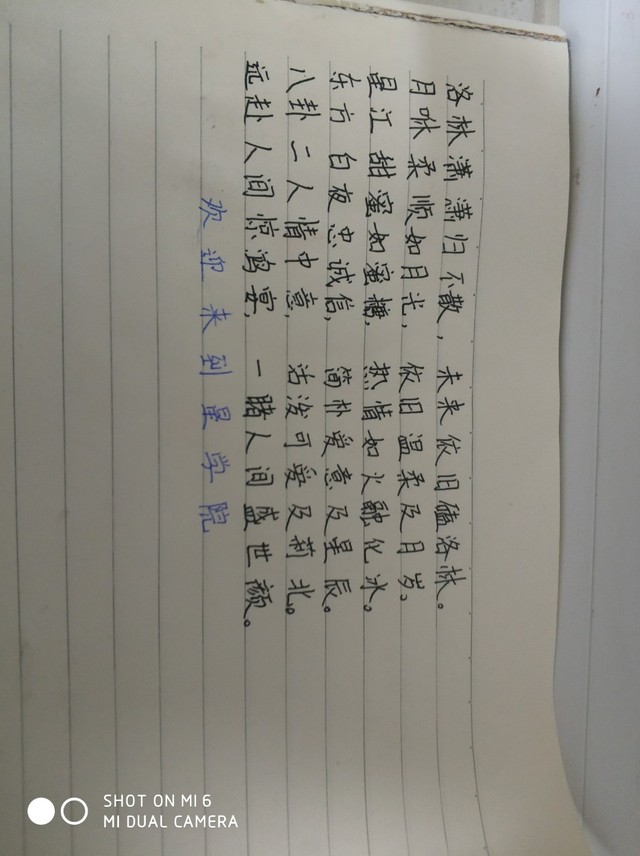 洛林潇潇归不散，未来依旧磕洛林。
月咻柔顺如月光，依旧温柔及月岁。
星江甜蜜如蜜糖，热情如火融化冰。
东方白夜忠诚信，简朴爱意及星辰。
八卦二人情中意，活泼可爱及莉北。
远赴人间惊鸿宴，一睹人间盛世颜。
欢迎来到星学院
SHOT ON MI 6
MI DUAL CAMERA